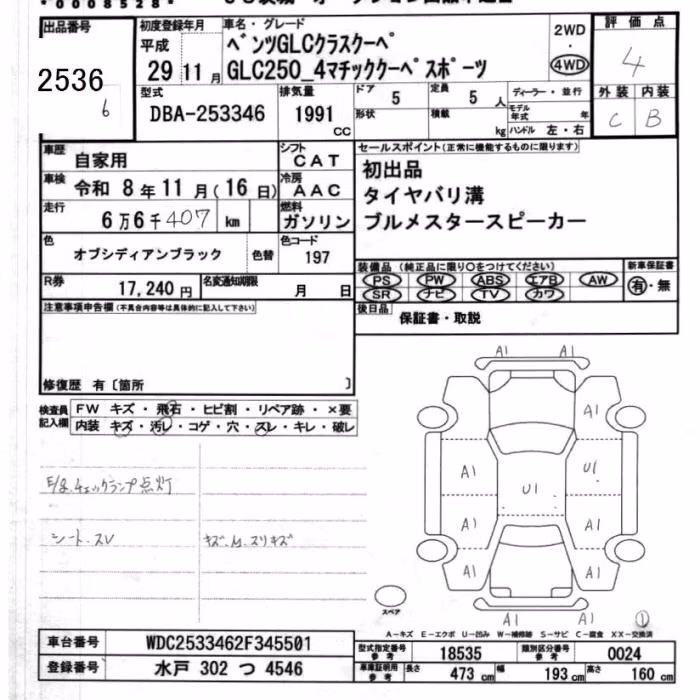 *0008528*
出品番号
2536
6
初度登録年月
平成
29 11 月
車名・グレード
ベンツGLCクラスクーペ
GLC250_4マチッククーペスポーツ
2WD
・
4WD
評価点
4
外装 内装
C B
型式
DBA-253346
排気量
1991
CC
ドア
5
定員
5 人
形状
積載
kg
ディーラー・並行
モデル年式 年
ハンドル 左・右
車歴
自家用
シフト
CAT
車検
令和 8 年 11 月 ( 16 日)
冷房
AAC
走行
6万6千407 km
燃料
ガソリン
色
オブシディアンブラック
色替
色コード
197
R券
17,240 円
名変通知期限
月 日
セールスポイント(正常に機能するものに限ります)
初出品
タイヤバリ溝
ブルメスタースピーカー
装備品 (純正品に限り○をつけてください)
PS PW ABS エアB AW
SR ナビ TV カワ
新車保証書
有・無
後日品
保証書・取説
注意事項申告欄(不具合内容等は具体的に記入して下さい)
修復歴 有〔箇所 〕
検査員記入欄
FW キズ・飛石・ヒビ割・リペア跡・×要
内装 キズ・汚レ・コゲ・穴・スレ・キレ・破レ
E/g.チェックランプ点灯
シート.スレ
A1 A1
A1
A1 U1
U1
A1 A1
A1 A1
A1 A1
1
スペア
A-キズ E-エクボ U-凹み W-補修跡 S-サビ C-腐食 XX-交換済
車台番号
WDC2533462F345501
登録番号
水戸 302 つ 4546
型式指定番号
参考
18535
類別区分番号
参考
0024
車庫証明用
参考
長さ
473 cm
幅
193 cm
高さ
160 cm